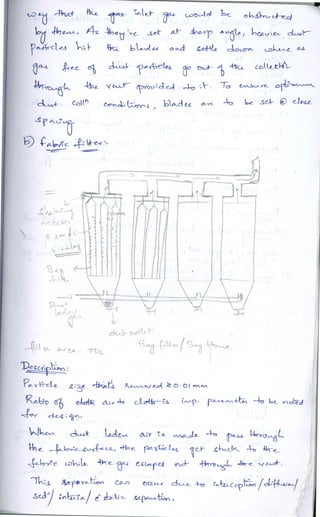 way that the gas inlet gas would be obstructed
by them. As they're set at sharp angle, heavier dust
particles hit the blades and settle down where as
gas free of dust particles go out of the collector
through the vent provided to it. To ensure optimum
dust colln conditions, blades are to be set @ close
spacing
b) Fabric filter:
Shaking
Bag
Dust
laden
gas
dust outlet
Bag filter / Bag House.
Description:
Particle size that's removed ≥ 0.01 mm
Ratio of air to cloth is imp. parameter to be noted
for design.
When dust laden air is made to pass through
the fabric surface, the particles get stuck to the
fabric while the gas escapes out through the vent.
This separation can occur due to interception / diffusion /